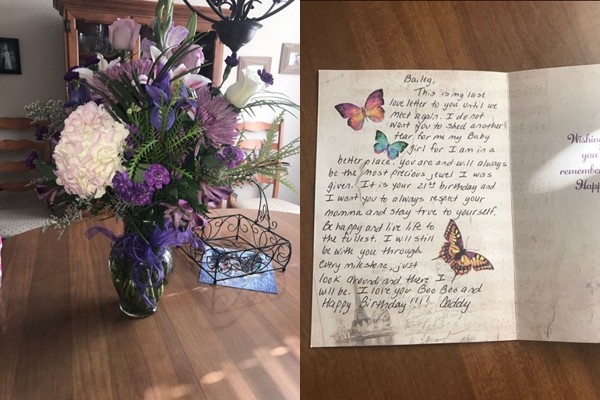 Bailey,
This is my last
love letter to you until we
meet again. I do not
want you to shed another
tear for me my Baby
girl for I am in a
better place. you are and will always
be the most precious jewel I was
given. It is your 21st birthday and
I want you to always respect your
momma and stay true to yourself.
Be happy and live life to
the fullest. I will still
be with you through
every milestone, just
look around and there I
will be. I love you Boo Boo and
Happy Birthday!!!! Daddy
Wishing
you
remembe
Happ